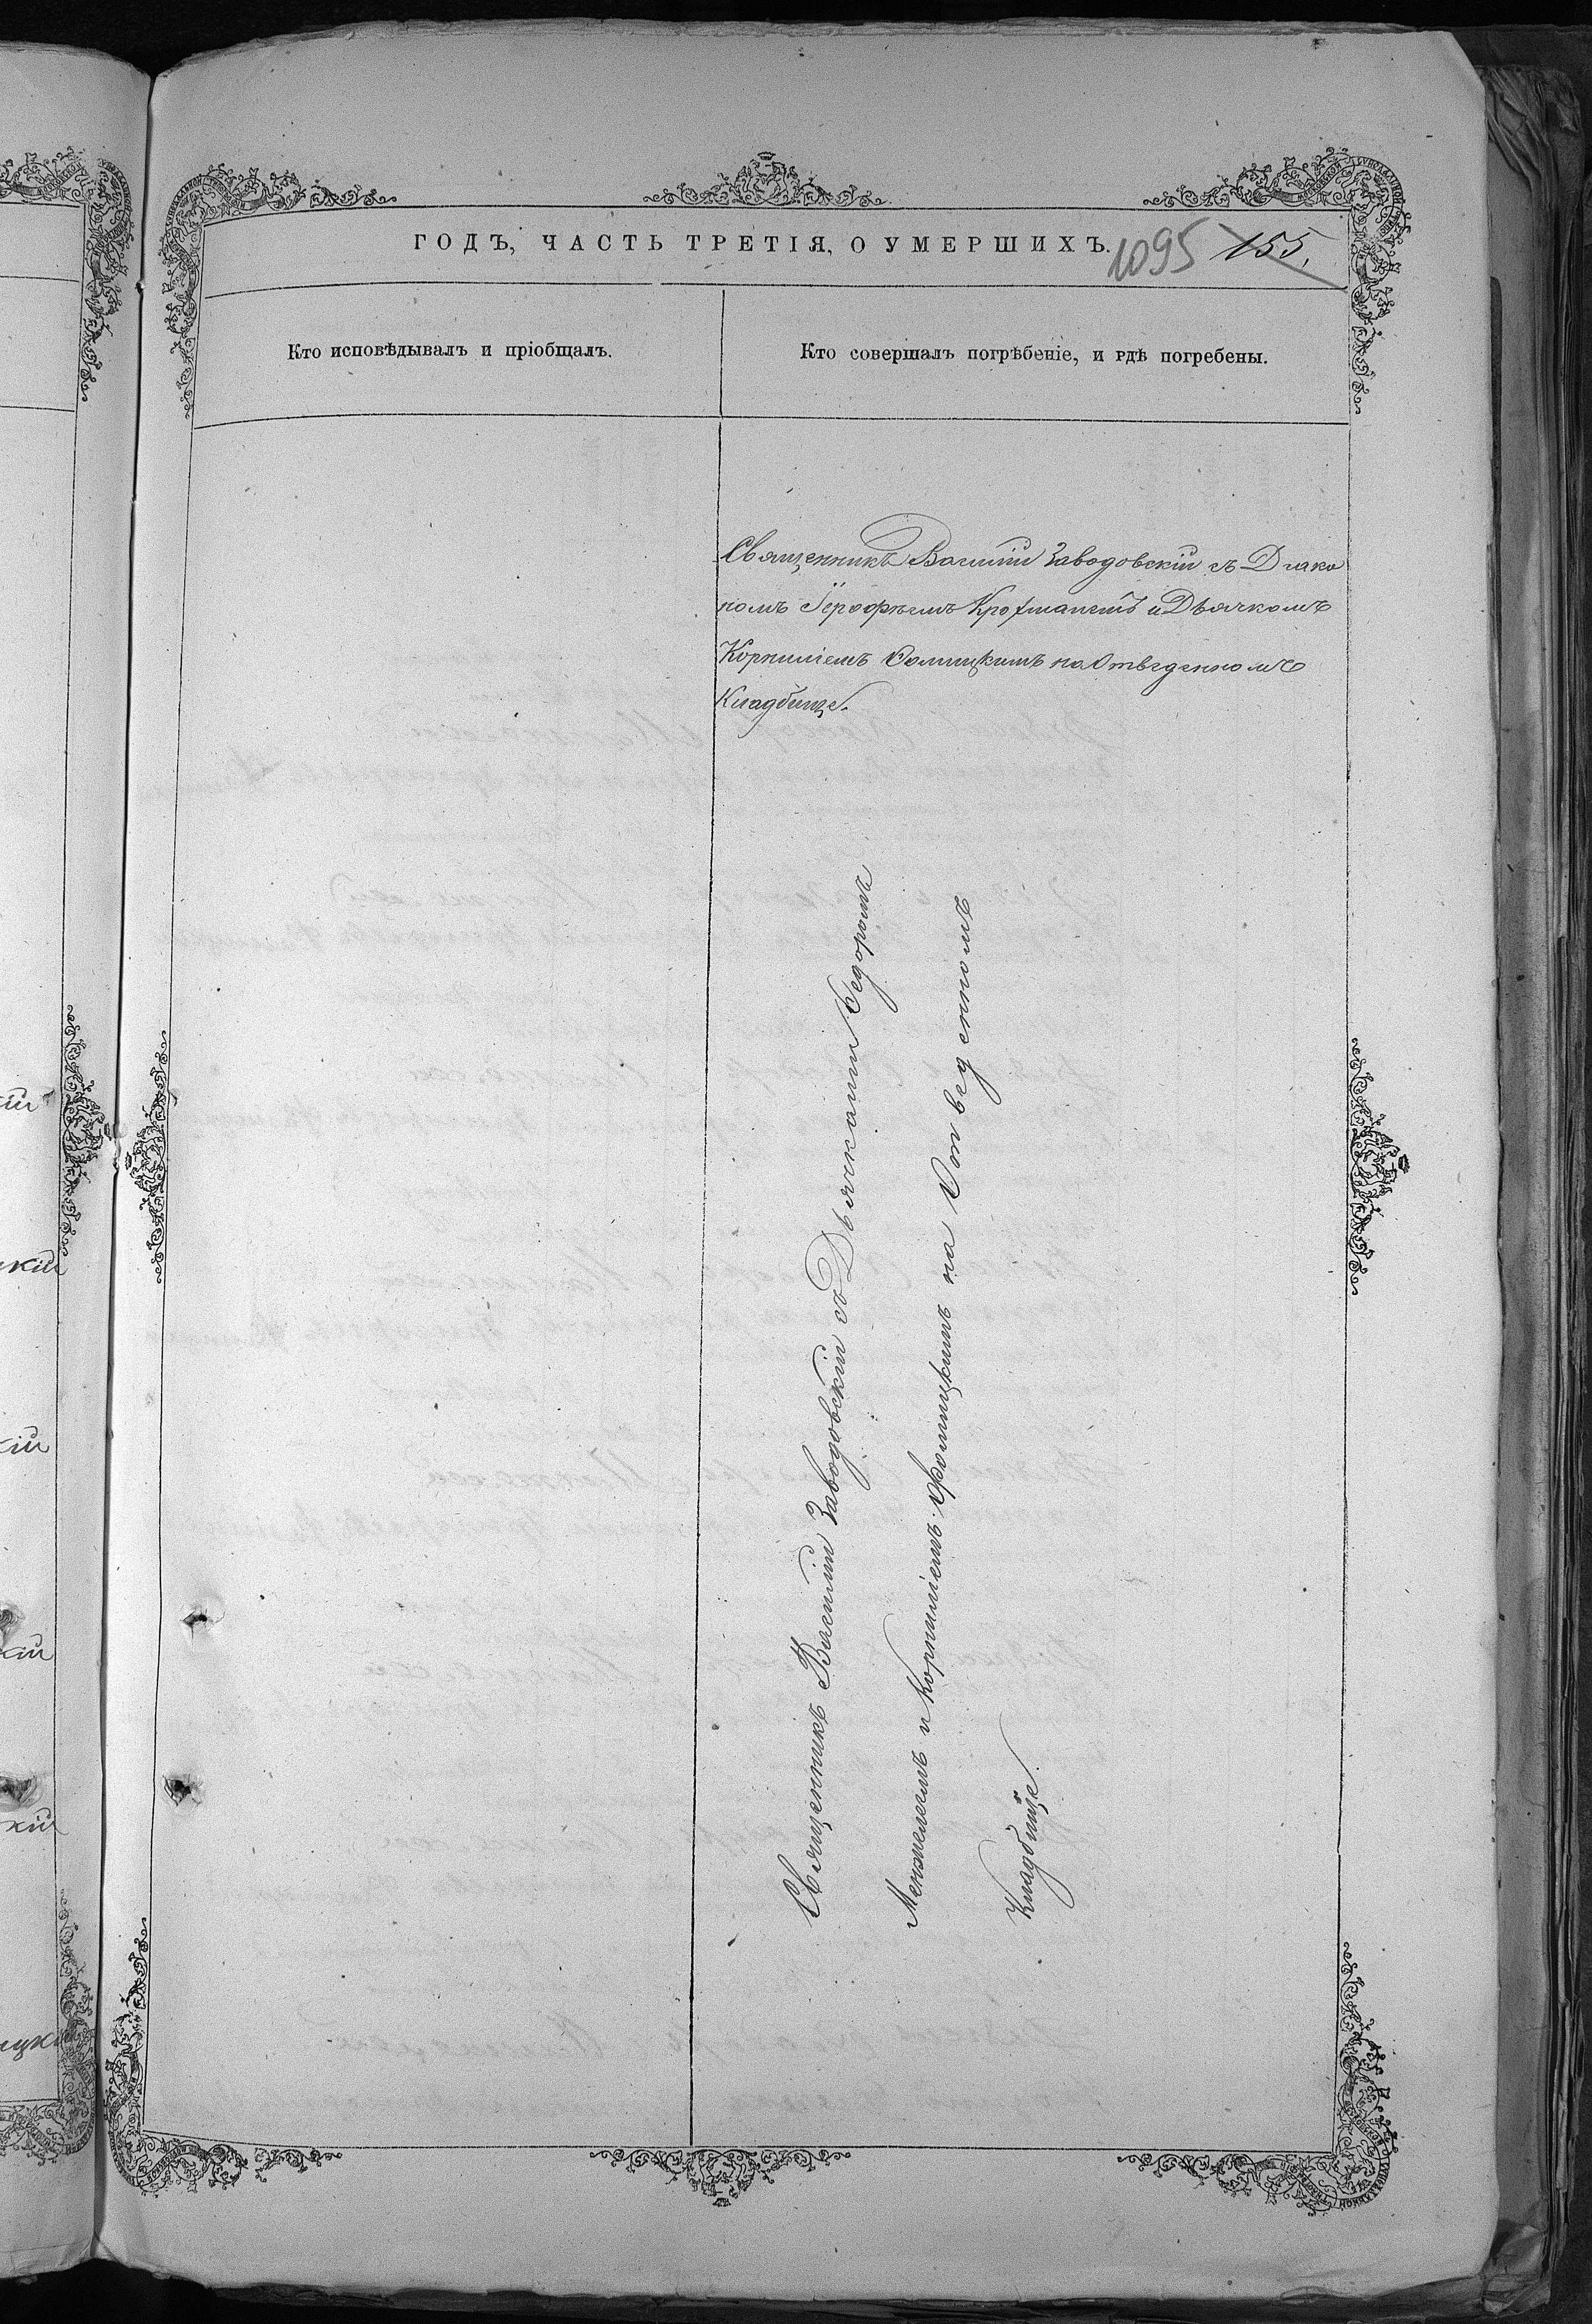 ГОДЪ, ЧАСТЬ ТРЕТІЯ, О УМЕРШИХЪ.
1095 155.
Кто исповѣдывалъ и пріобщалъ.
Кто совершалъ погрѣбеніе, и гдѣ погребены.
Священникъ Василій Заводовскій съ Діако
номъ Іерофѣемъ и Дьячкомъ
Корниліемъ Фомицкимъ на Отведенномъ
Кладбище.
Священникъ Василій Заводовскій съ Дьячками Ѳедоромъ
и Корниліемъ Фомицкимъ на Отведенномъ
Кладбище.
кій
кій
кій
кій